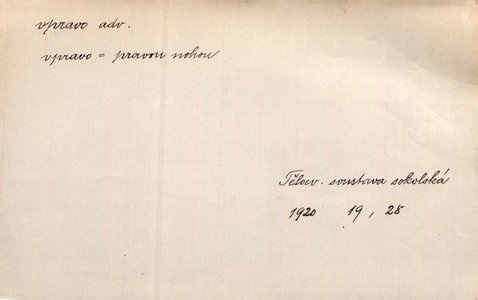 vpravo adv.
vpravo = pravou nohou
Tělocv. soustava sokolská
1920 19, 28